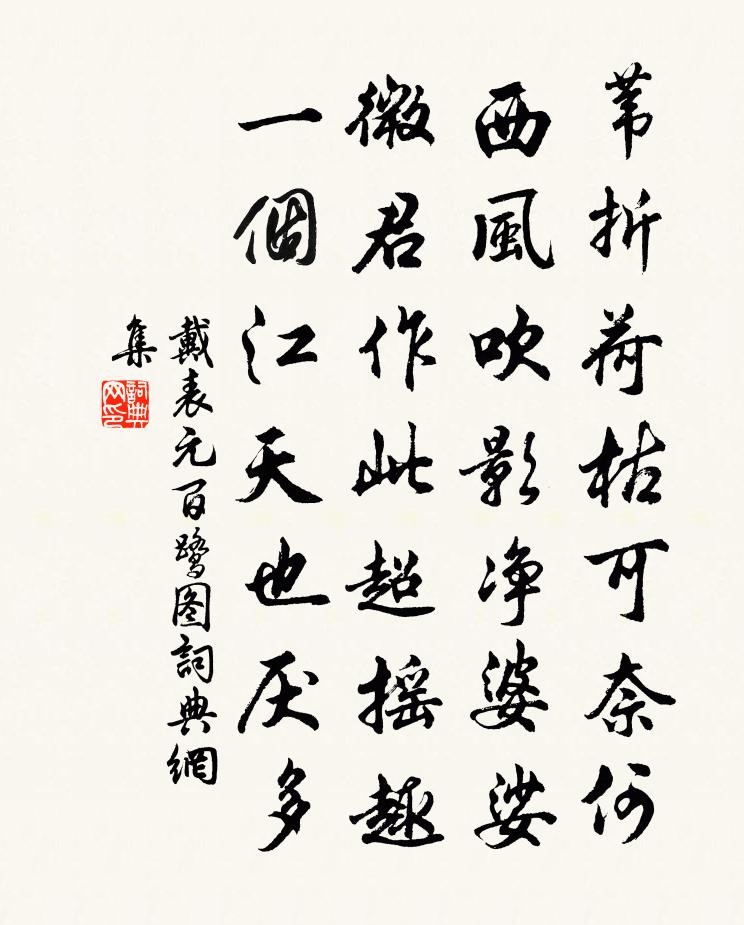 苇折荷枯可奈何
西風吹影净婆娑
微君作此超摇趣
一個江天也厌多
戴表元百鹭图詞典網
集
詞典
网印